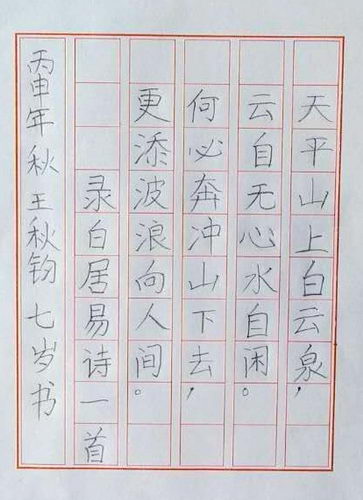 天平山上白云泉，
云自无心水自闲。
何必奔冲山下去，
更添波浪向人间。
录白居易诗一首
丙申年秋王秋钧七岁书